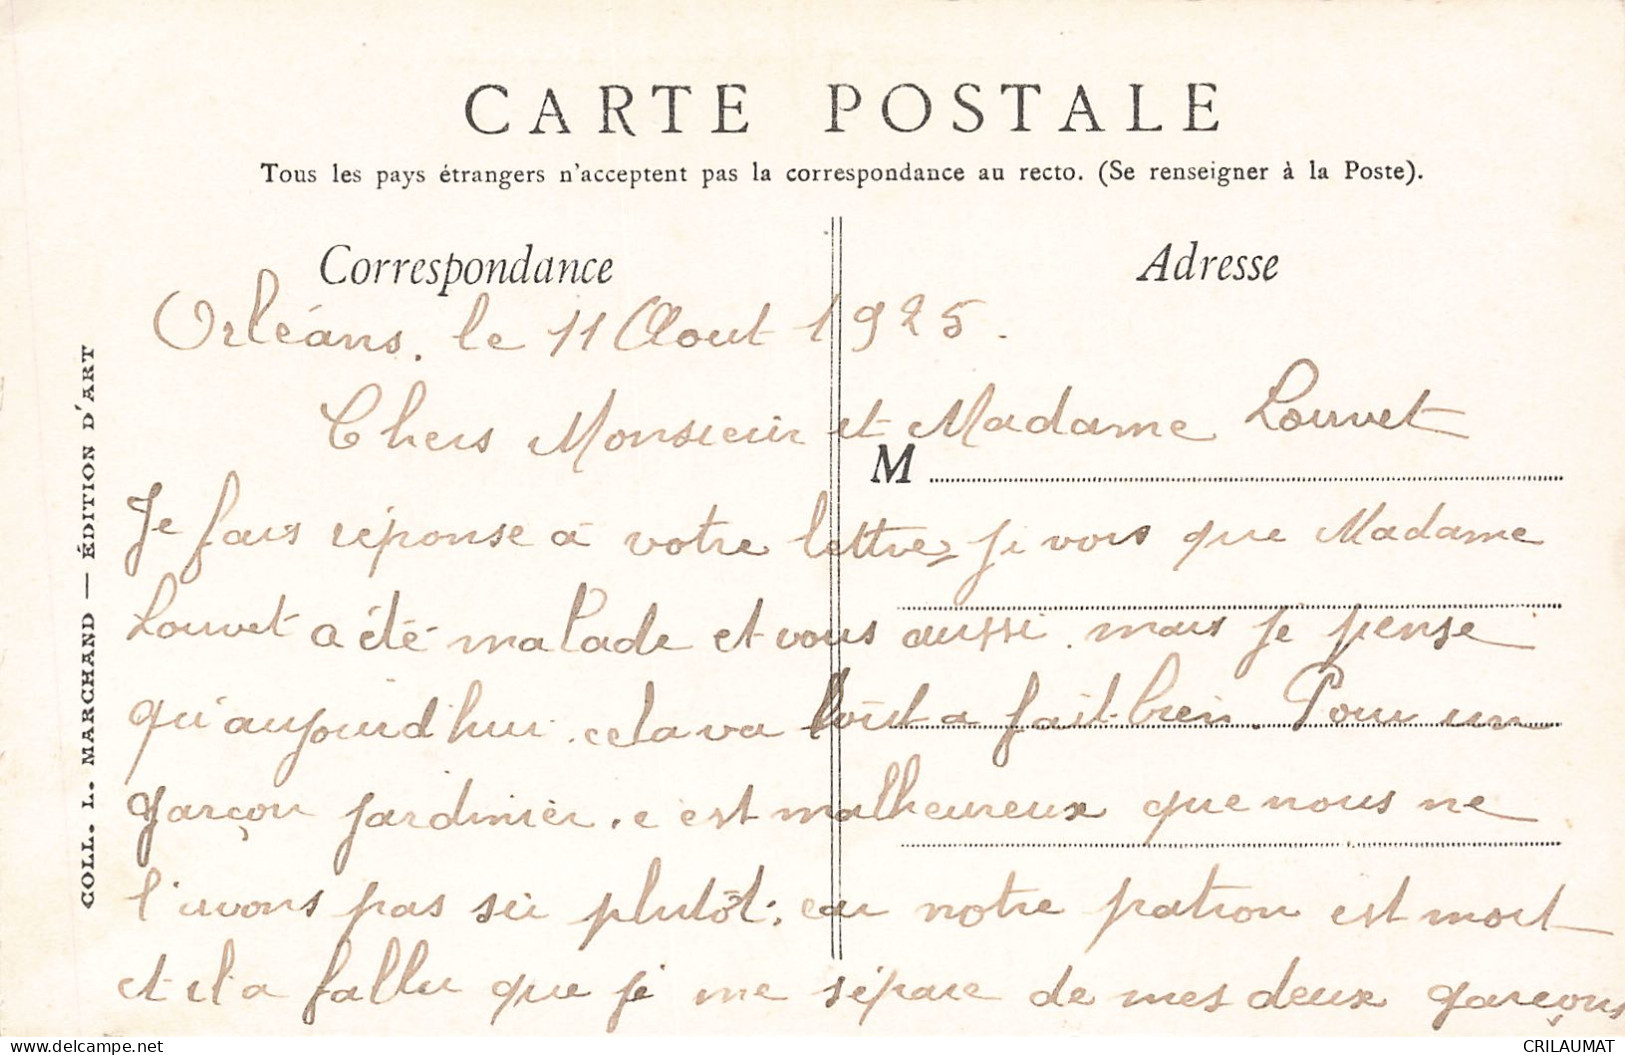 CARTE POSTALE
Tous les pays étrangers n'acceptent pas la correspondance au recto. (Se renseigner à la Poste).
Correspondance
Adresse
COLL. L. MARCHAND — ÉDITION D'ART
Orléans. le 11 Aout 1925.
Chers Monsieur et Madame Louvet
M
Je fais réponse à votre lettre, je vois que Madame
Louvet a été malade et vous aussi. mais je pense
qu'aujourd'hui. cela va tout a fait bien. Pour un
garçon jardinier. c'est malheureux que nous ne
l'avons pas su plutôt; car notre patron est mort
et il a fallu que je me sépare de mes deux garçons
delcampe.net
CRILAUMAT